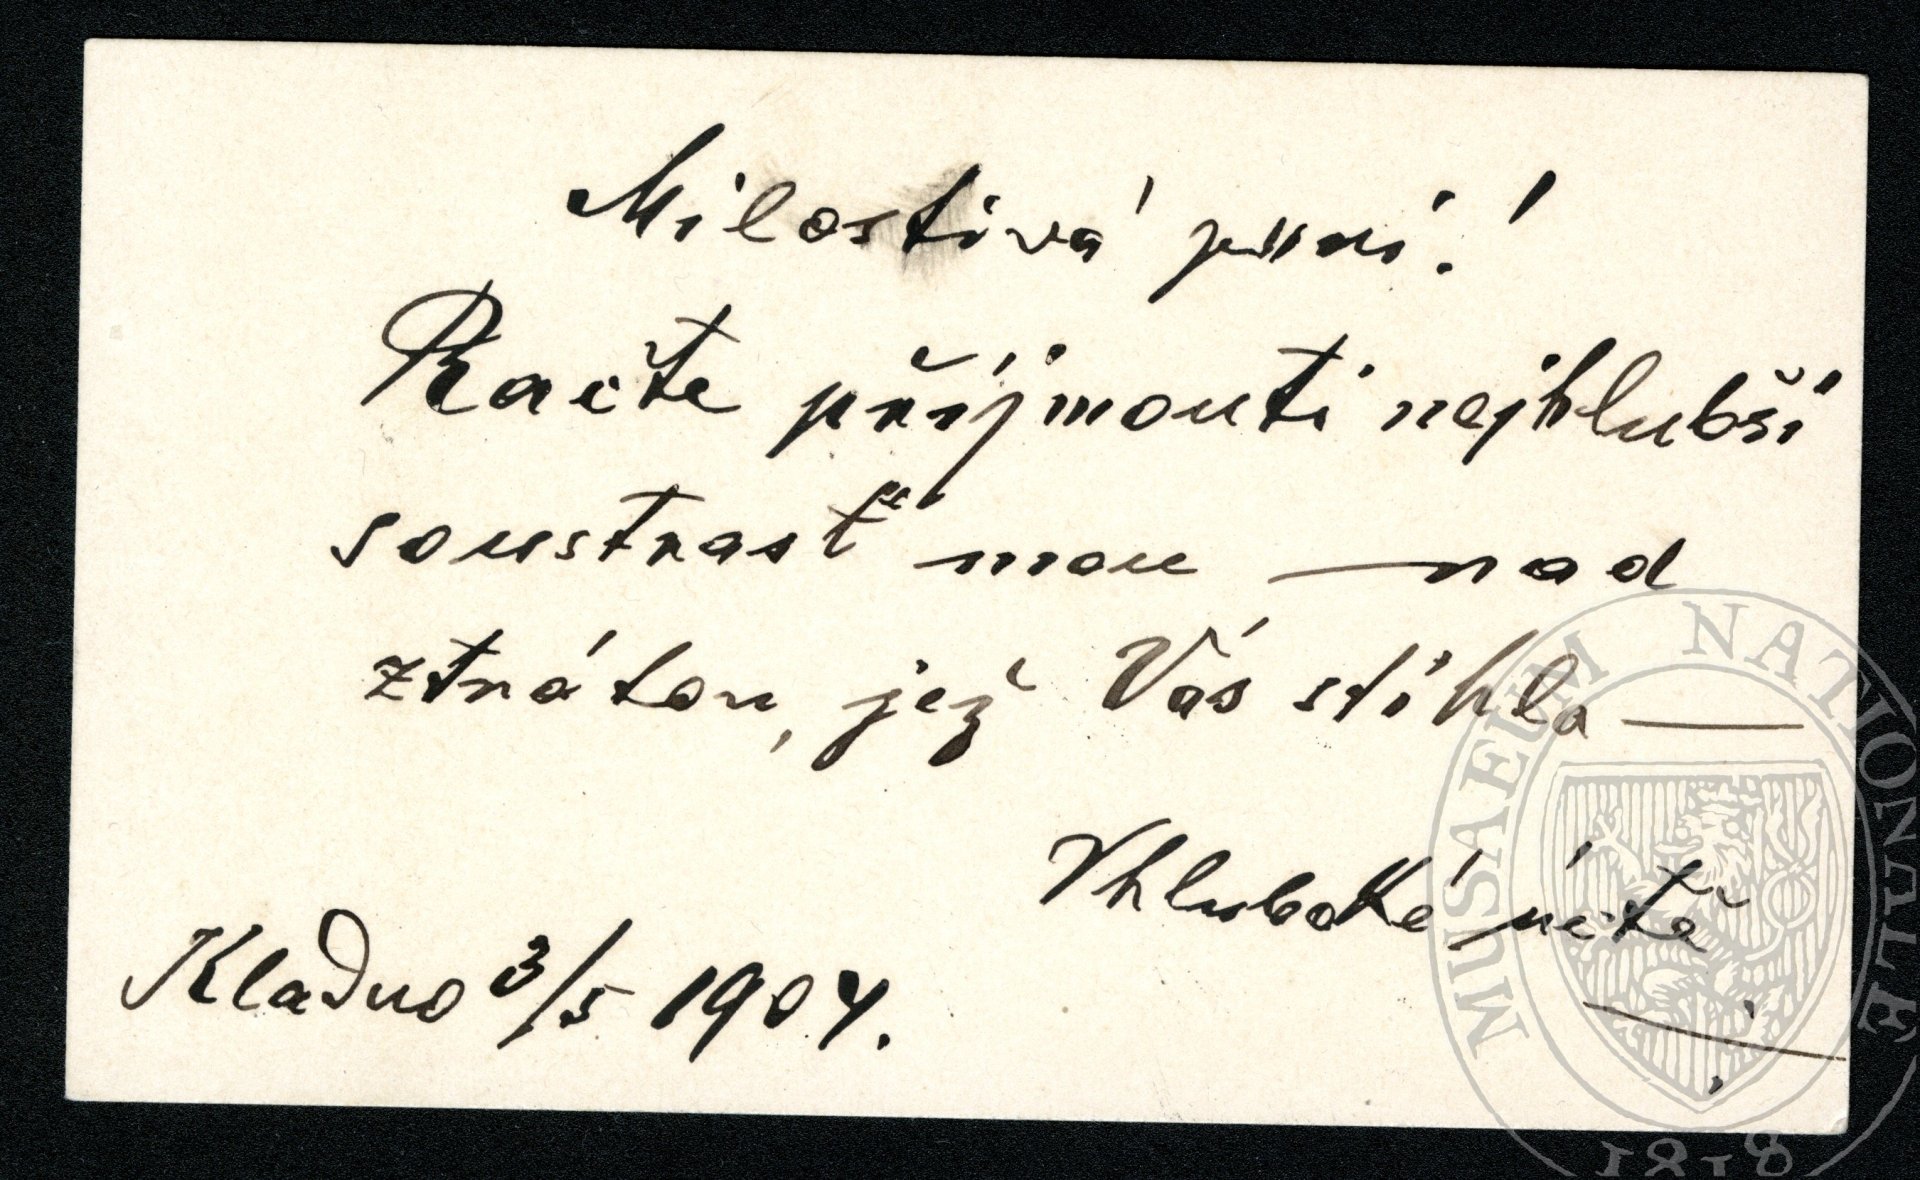 Milostivá paní!
Račte přijmouti nejhlubší
soustrast mou nad
ztrátou, jež Vás stihla —
V hluboké úctě
Kladno 3/5 1904.
MUSAEUM NATIONALE
1818